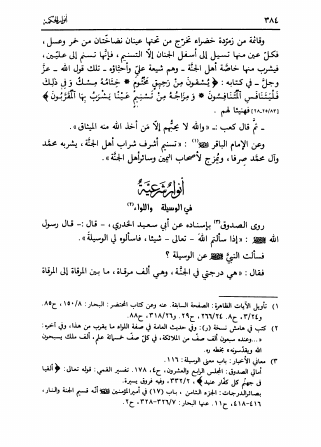 ٣٨٤
وقائمة من زمرّدة خضراء تخرج من تحتها عينان نضّاختان من خمر وعسل،
فكلّ عين منها تسيل إلى أسفل الجنان إلّا التسنيم، فإنّها تسنم إلى علّيّين،
فيشرب منها خاصّة أهل الجنّة ـ وهم شيعة عليّ وأحبّاؤه ـ تلك قول الله ـ عزّ
وجلّ ـ في كتابه: ﴿يُسْقَوْنَ مِنْ رَحِيقٍ مَخْتُومٍ * خِتَامُهُ مِسْكٌ وَفِي ذَلِكَ
فَلْيَتَنَافَسِ الْمُتَنَافِسُونَ * وَمِزَاجُهُ مِنْ تَسْنِيمٍ عَيْنًا يَشْرَبُ بِهَا الْمُقَرَّبُونَ﴾
(٢٥/٨٣-٢٨) فهنيئا لهم.
ـ ثمّ قال كعب: ـ «والله لا يحبّهم إلّا من أخذ الله منه الميثاق».
وعن الإمام الباقر (١): «تسنيم أشرف شراب أهل الجنّة، يشربه محمّد
وآل محمّد صرفا، ويمزج لأصحاب اليمين وسائر أهل الجنّة».
أنوار شرعيّة
في الوسيلة واللواء (٢)
روى الصدوق (٣) بإسناده عن أبي سعيد الخدري، ـ قال: ـ قال رسول
الله: «إذا سألتم الله ـ تعالى ـ شيئا، فاسألوه لي الوسيلة».
فسألت النبيّ عن الوسيلة؟
فقال: «هي درجتي في الجنّة، وهي ألف مرقاة، ما بين المرقاة إلى المرقاة
١) تأويل الآيات الظاهرة: الصفحة السابقة. عنه وعن كتاب المحتضر: البحار: ١٥٠/٨، ح٨٥.
٢) كتب في هامش نسخة (ر): وفي حديث العامة في صفة اللواء ما يقرب من هذا، وفي آخره:
«...وعنده سبعون ألف صفّ من الملائكة، في كلّ صفّ خمسمائة ألف ملك يسبحون
الله ويقدّسونه» بخطه ره.
٣) معاني الأخبار: باب معنى الوسيلة: ١١٦.
أمالي الصدوق: المجلس الرابع والعشرون، ح٤، ١٧٨. تفسير القمي: قوله تعالى: ﴿ألقيا
في جهنّم كلّ كفّار عنيد﴾، ٣٣٢/٢، وفيه فروق يسيرة.
بصائر الدرجات: الجزء الثامن، باب (١٧) في أمير المؤمنين أنّه قسيم الجنة والنار،